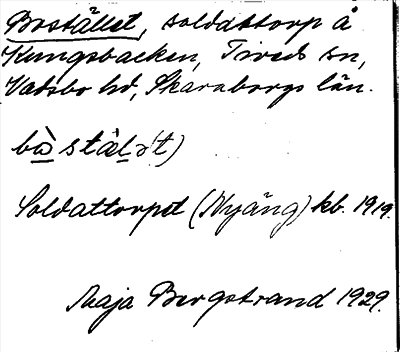 Bostället, soldattorp å
Kungsbacken, Tiveds sn,
Vadsbo hd, Skaraborgs län.
bò stäl ət)
Soldattorpet (Nyäng) kb. 1919.
Maja Bergstrand 1929.